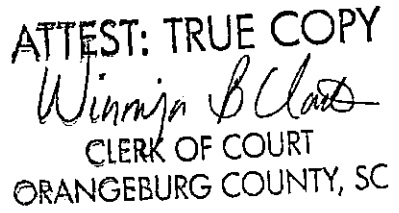 ATTEST: TRUE COPY
B Clark
CLERK OF COURT
ORANGEBURG COUNTY, SC